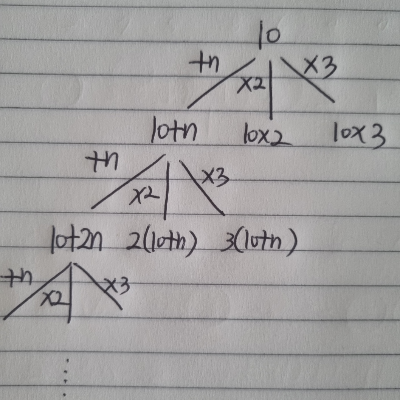 10
+n ×2 ×3
10+n 10×2 10×3
+n ×2 ×3
10+2n 2(10+n) 3(10+n)
+n ×2 ×3
⋮